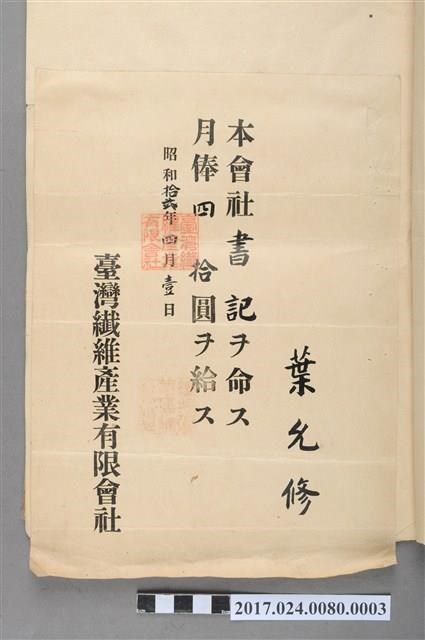 葉允修
本會社書記ヲ命ス
月俸四拾圓ヲ給ス
昭和拾貳年四月壹日
臺灣纖維產業有限會社
2017.024.0080.0003